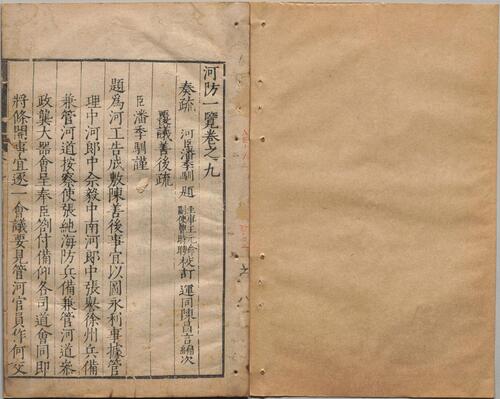 河防一覽卷之九
奏疏 河臣潘季馴題 運同陳昌言編次
覆議善後疏
臣潘季馴謹
題爲河工告成敷陳善後事宜以圖永利事據管
理中河郎中佘毅中南河郎中張譽徐州兵備
兼管河道按察使張純海防兵備兼管河道叅
政龔大器會呈奉臣劄付備仰各司道會同即
將條開事宜逐一會議要見管河官員作何交